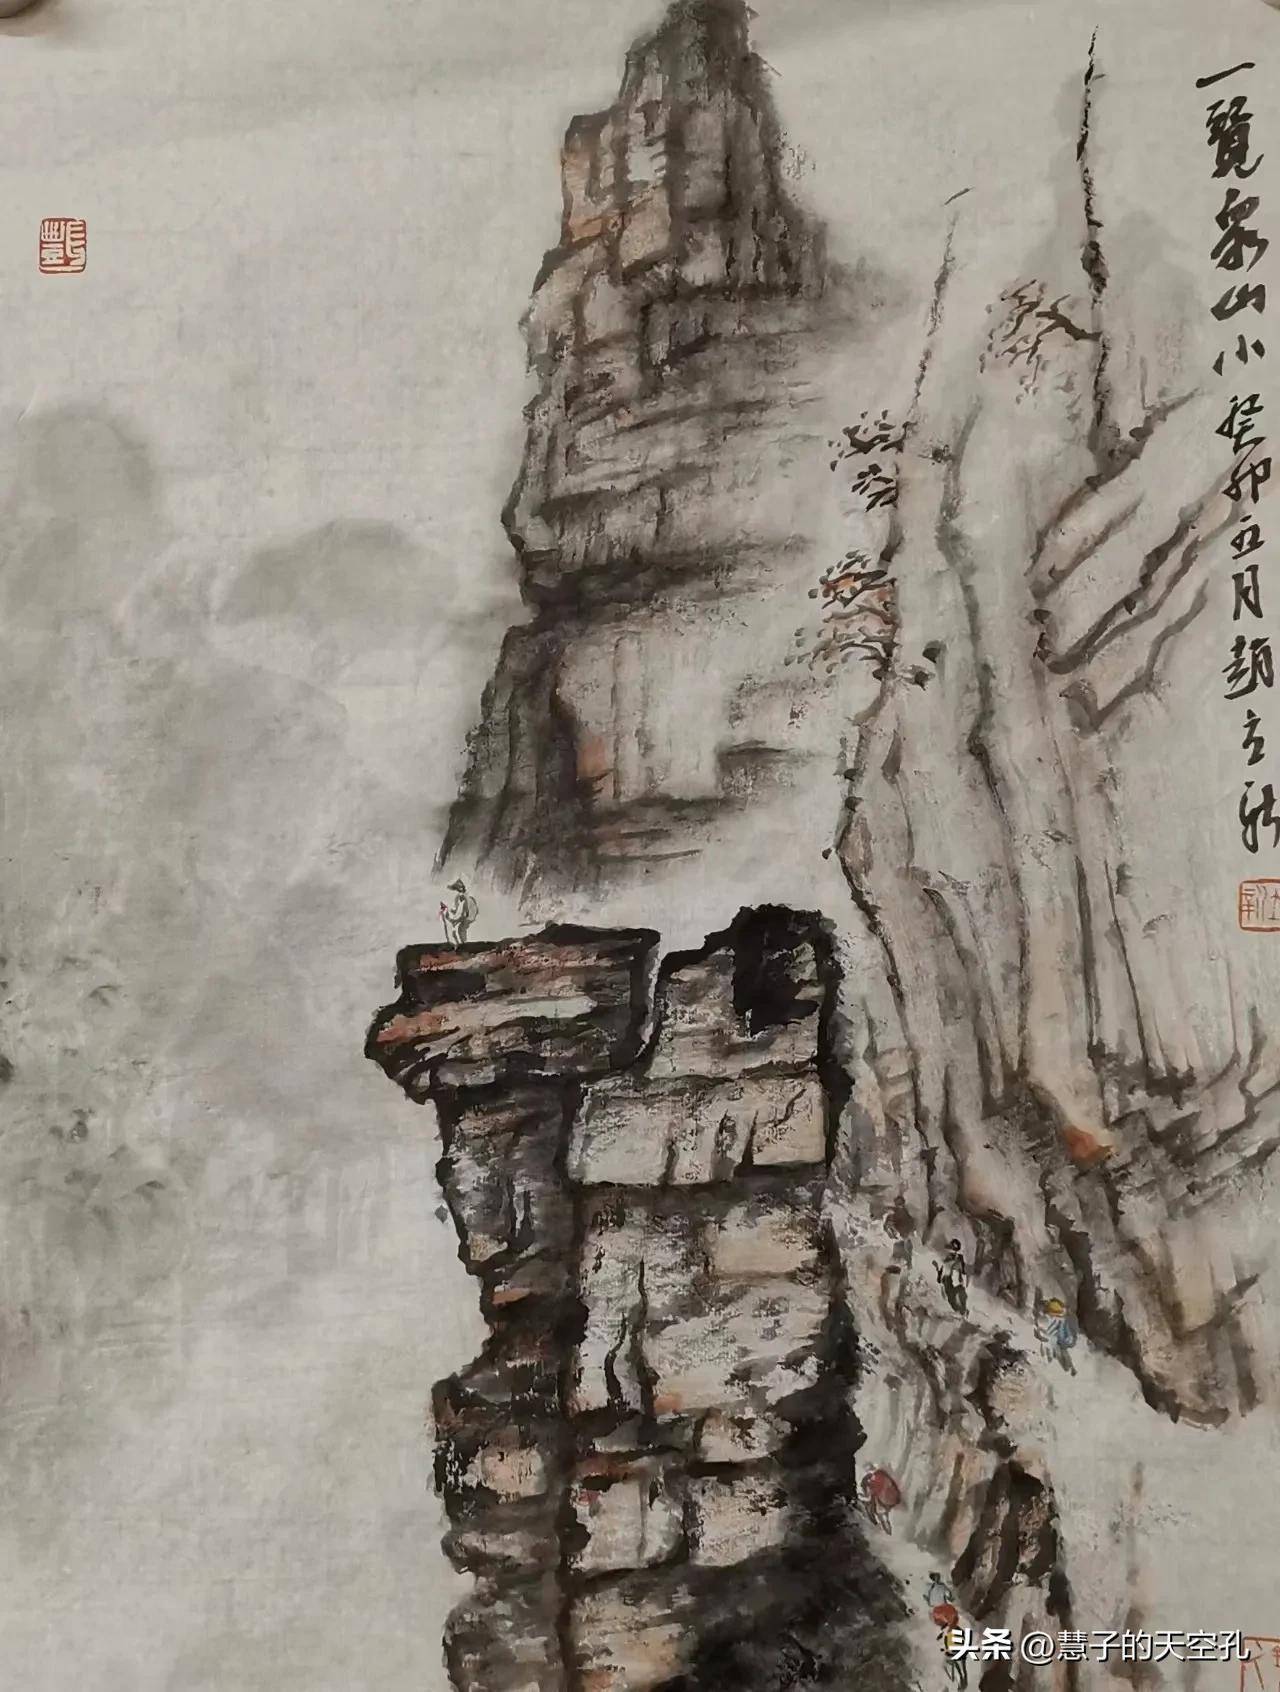 一覽众山小 癸卯五月 趙立新
头条 @慧子的天空孔